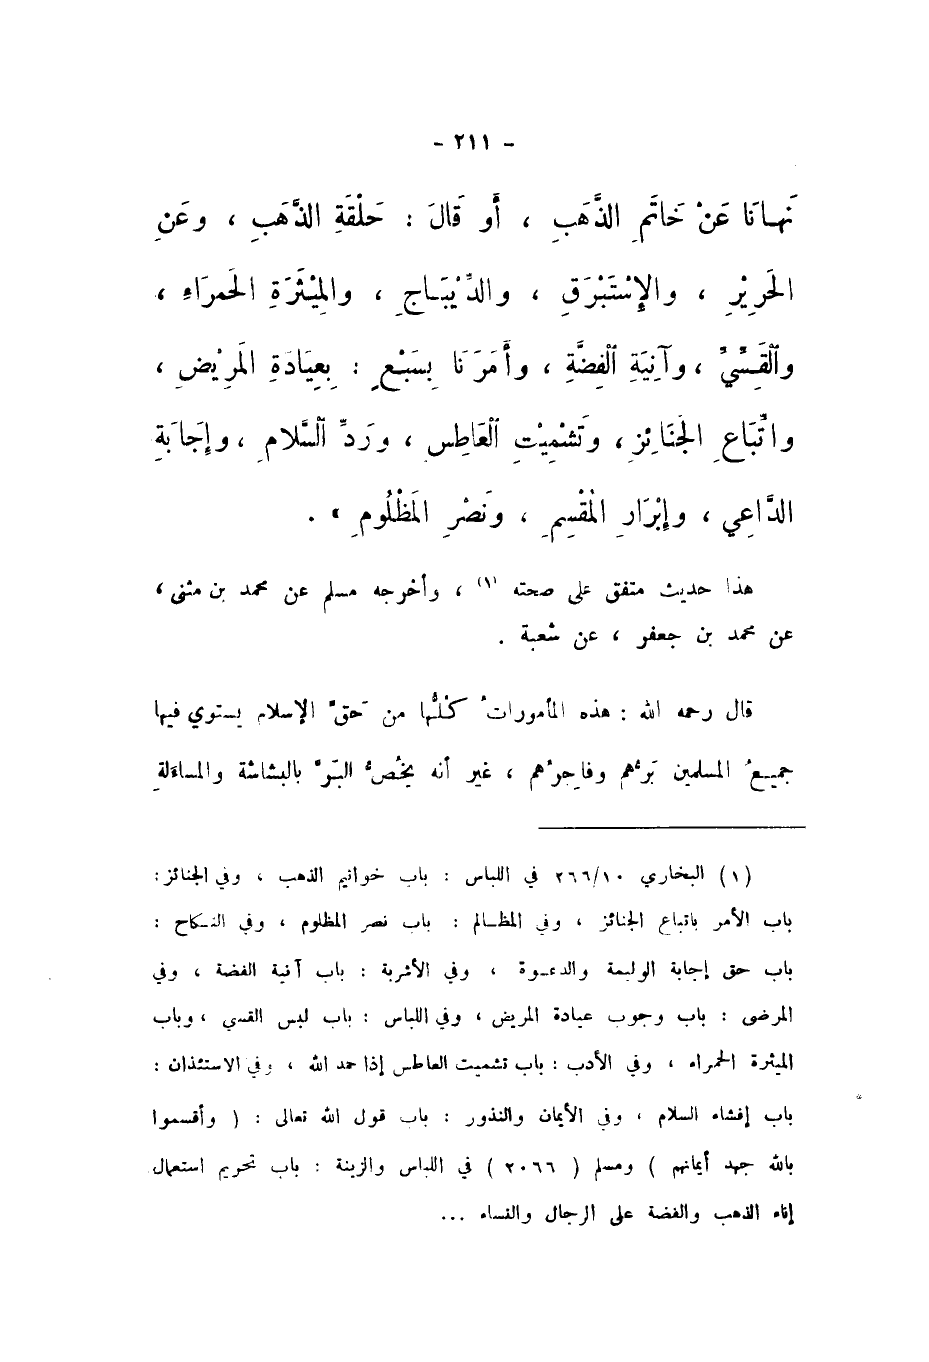 - ٢١١ -
نَهانَا عَنْ خَاتَمِ الذَّهَبِ ، أَو قَالَ : حَلْقَةِ الذَّهَبِ ، وعَنِ
الحَرِيْرِ ، والإِسْتَبْرَقِ ، والدِّيْبَاجِ ، والمِيْثَرَةِ الحَمرَاءِ ،
والْقَسِّيِّ ، وآنِيَةِ الْفِضَّةِ ، وأَمَرَنَا بِسَبْعٍ : بِعِيَادَةِ المَرِيْضِ ،
واتِّبَاعِ الجَنَائِزِ ، وتَشْمِيْتِ الْعَاطِسِ ، ورَدِّ السَّلامِ ، وإِجَابَةِ
الدَّاعِي ، وإِبْرَارِ المُقْسِمِ ، ونَصْرِ المَظْلُومِ » .
هذا حديث متفق على صحته (١) ، وأخرجه مسلم عن محمد بن مثنى ،
عن محمد بن جعفر ، عن شعبة .
قال رحمه الله : هذه المأموراتُ كُلُّها من حَقِّ الإسلام يستوي فيها
جميعُ المسلمين بَرُّهم وفاجِرُهم ، غير أنه يَخُصُّ البَرَّ بالبشاشة والمساءلةِ
(١) البخاري ٢٦٦/١٠ في اللباس : باب خواتيم الذهب ، وفي الجنائز :
باب الأمر باتباع الجنائز ، وفي المظالم : باب نصر المظلوم ، وفي النكاح :
باب حق إجابة الوليمة والدعوة ، وفي الأشربة : باب آنية الفضة ، وفي
المرضى : باب وجوب عيادة المريض ، وفي اللباس : باب لبس القسي ، وباب
الميثرة الحمراء ، وفي الأدب : باب تشميت العاطس إذا حمد الله ، وفي الاستئذان :
باب إفشاء السلام ، وفي الأيمان والنذور : باب قول الله تعالى : ( وأقسموا
بالله جهد أيمانهم ) ومسلم ( ٢٠٦٦ ) في اللباس والزينة : باب تحريم استعمال
إناء الذهب والفضة على الرجال والنساء ...